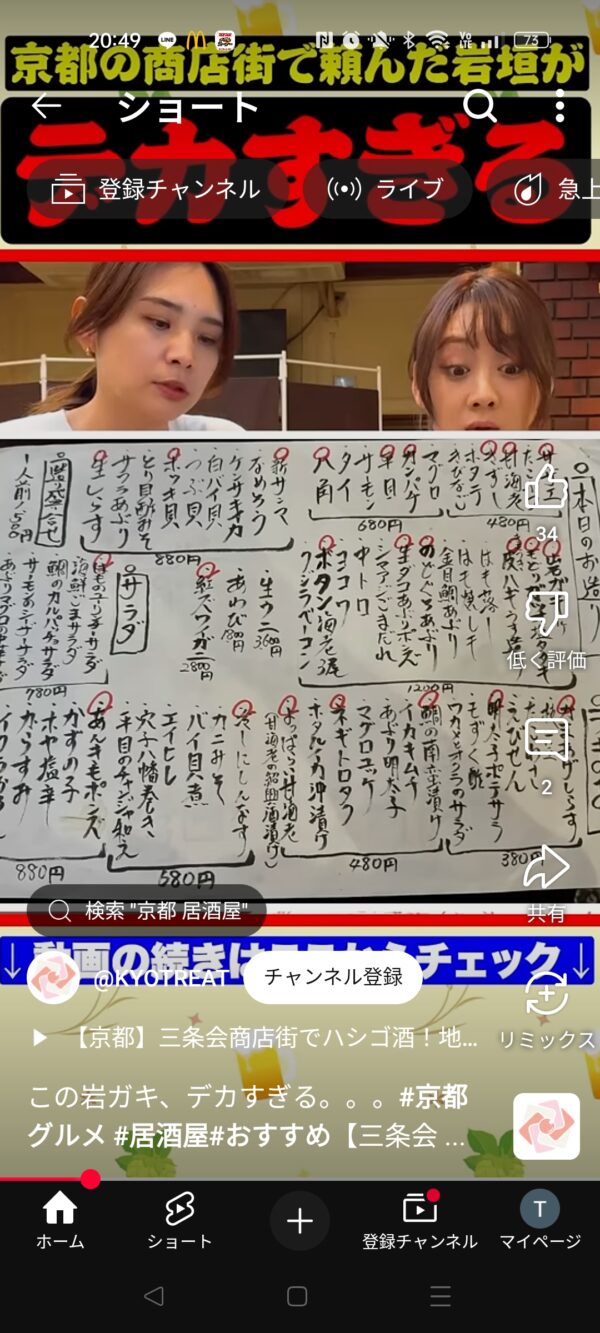 20:49
73
京都の商店街で頼んだ岩垣が
ショート
デカすぎる
登録チャンネル
ライブ
急上
本日のお造り
サザエ
甘海老
きずし
ホタテ
きびなご
480円
マグロ
カンパチ
平目
サーモン
タイ
八角
680円
新サンマ
なめろう
ケンサキイカ
白バイ貝
つぶ貝
ホッキ貝
とり貝酢みそ
サワラあぶり
生しらす
880円
豊盛合せ
一人前
岩ガキ
はも落し
はも焼しモ
金目鯛あぶり
のどぐろあぶり
生ダコあぶりポン酢
シマアジごまだれ
中トロ
ヨコワ
ボタン海老3尾
クジラベーコン
1200円
生ウニ 3600円
あわび 1800円
紅ズワイガニ 2800円
サラダ
はものユッケサラダ
海鮮ごまサラダ
鯛のカルパッチョサラダ
780円
えびせん
明太子ポテサラ
もずく酢
ワカメとオクラのサラダ
380円
鯛の南蛮漬け
イカキムチ
あぶり明太子
マグロユッケ
ネギトロタク
ホタルイカ沖漬け
よっぱらい甘海老
(甘海老の紹興酒漬け)
480円
冷しにしんなす
カニみそ
バイ貝煮
エイヒレ
穴子八幡巻き
平目のチャンジャ和え
580円
あんきもポン酢
かずの子
ホヤ塩辛
からすみ
880円
34
低く評価
2
共有
リミックス
検索 "京都 居酒屋"
↓動画の続きは
チェック↓
@KYOTREAT
チャンネル登録
【京都】三条会商店街でハシゴ酒！地...
この岩ガキ、デカすぎる。。。#京都
グルメ #居酒屋#おすすめ【三条会 ...
ホーム
ショート
登録チャンネル
T
マイページ